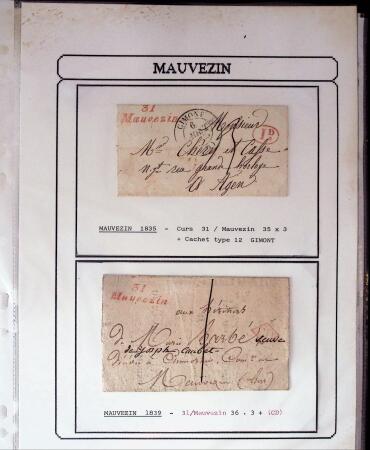 MAUVEZIN
31
Mauvezin
GIMONT
6
1D
Monsieur
Md Chéry et
rue grande
à Agen
MAUVEZIN 1835 - Curs 31 / Mauvezin 35 x 3
+ Cachet type 12 GIMONT
31
Mauvezin
aux héritiers
de Marie Barbé veuve
de Joseph
Mauvezin
MAUVEZIN 1839 - 31/Mauvezin 36 . 3 + (CD)